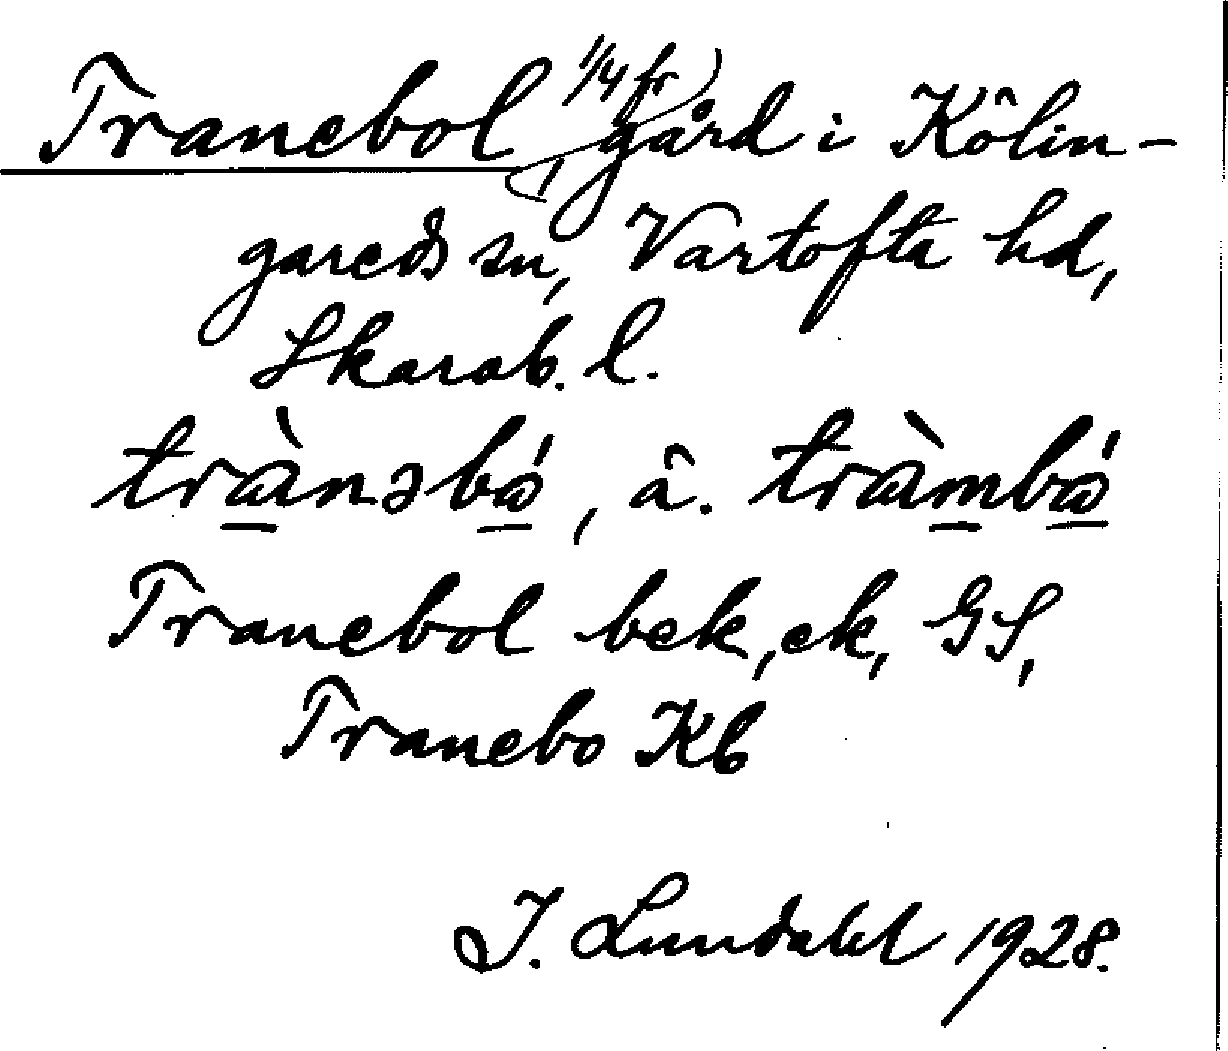 Tranebol 1/4 fr gård i Kölin-
gareds sn, Vartofta hd,
Skarab. l.
trànəbó, ä. tràmbó
Tranebol bek, ek, GS,
Tranebo Kb
I. Lundahl 1928.